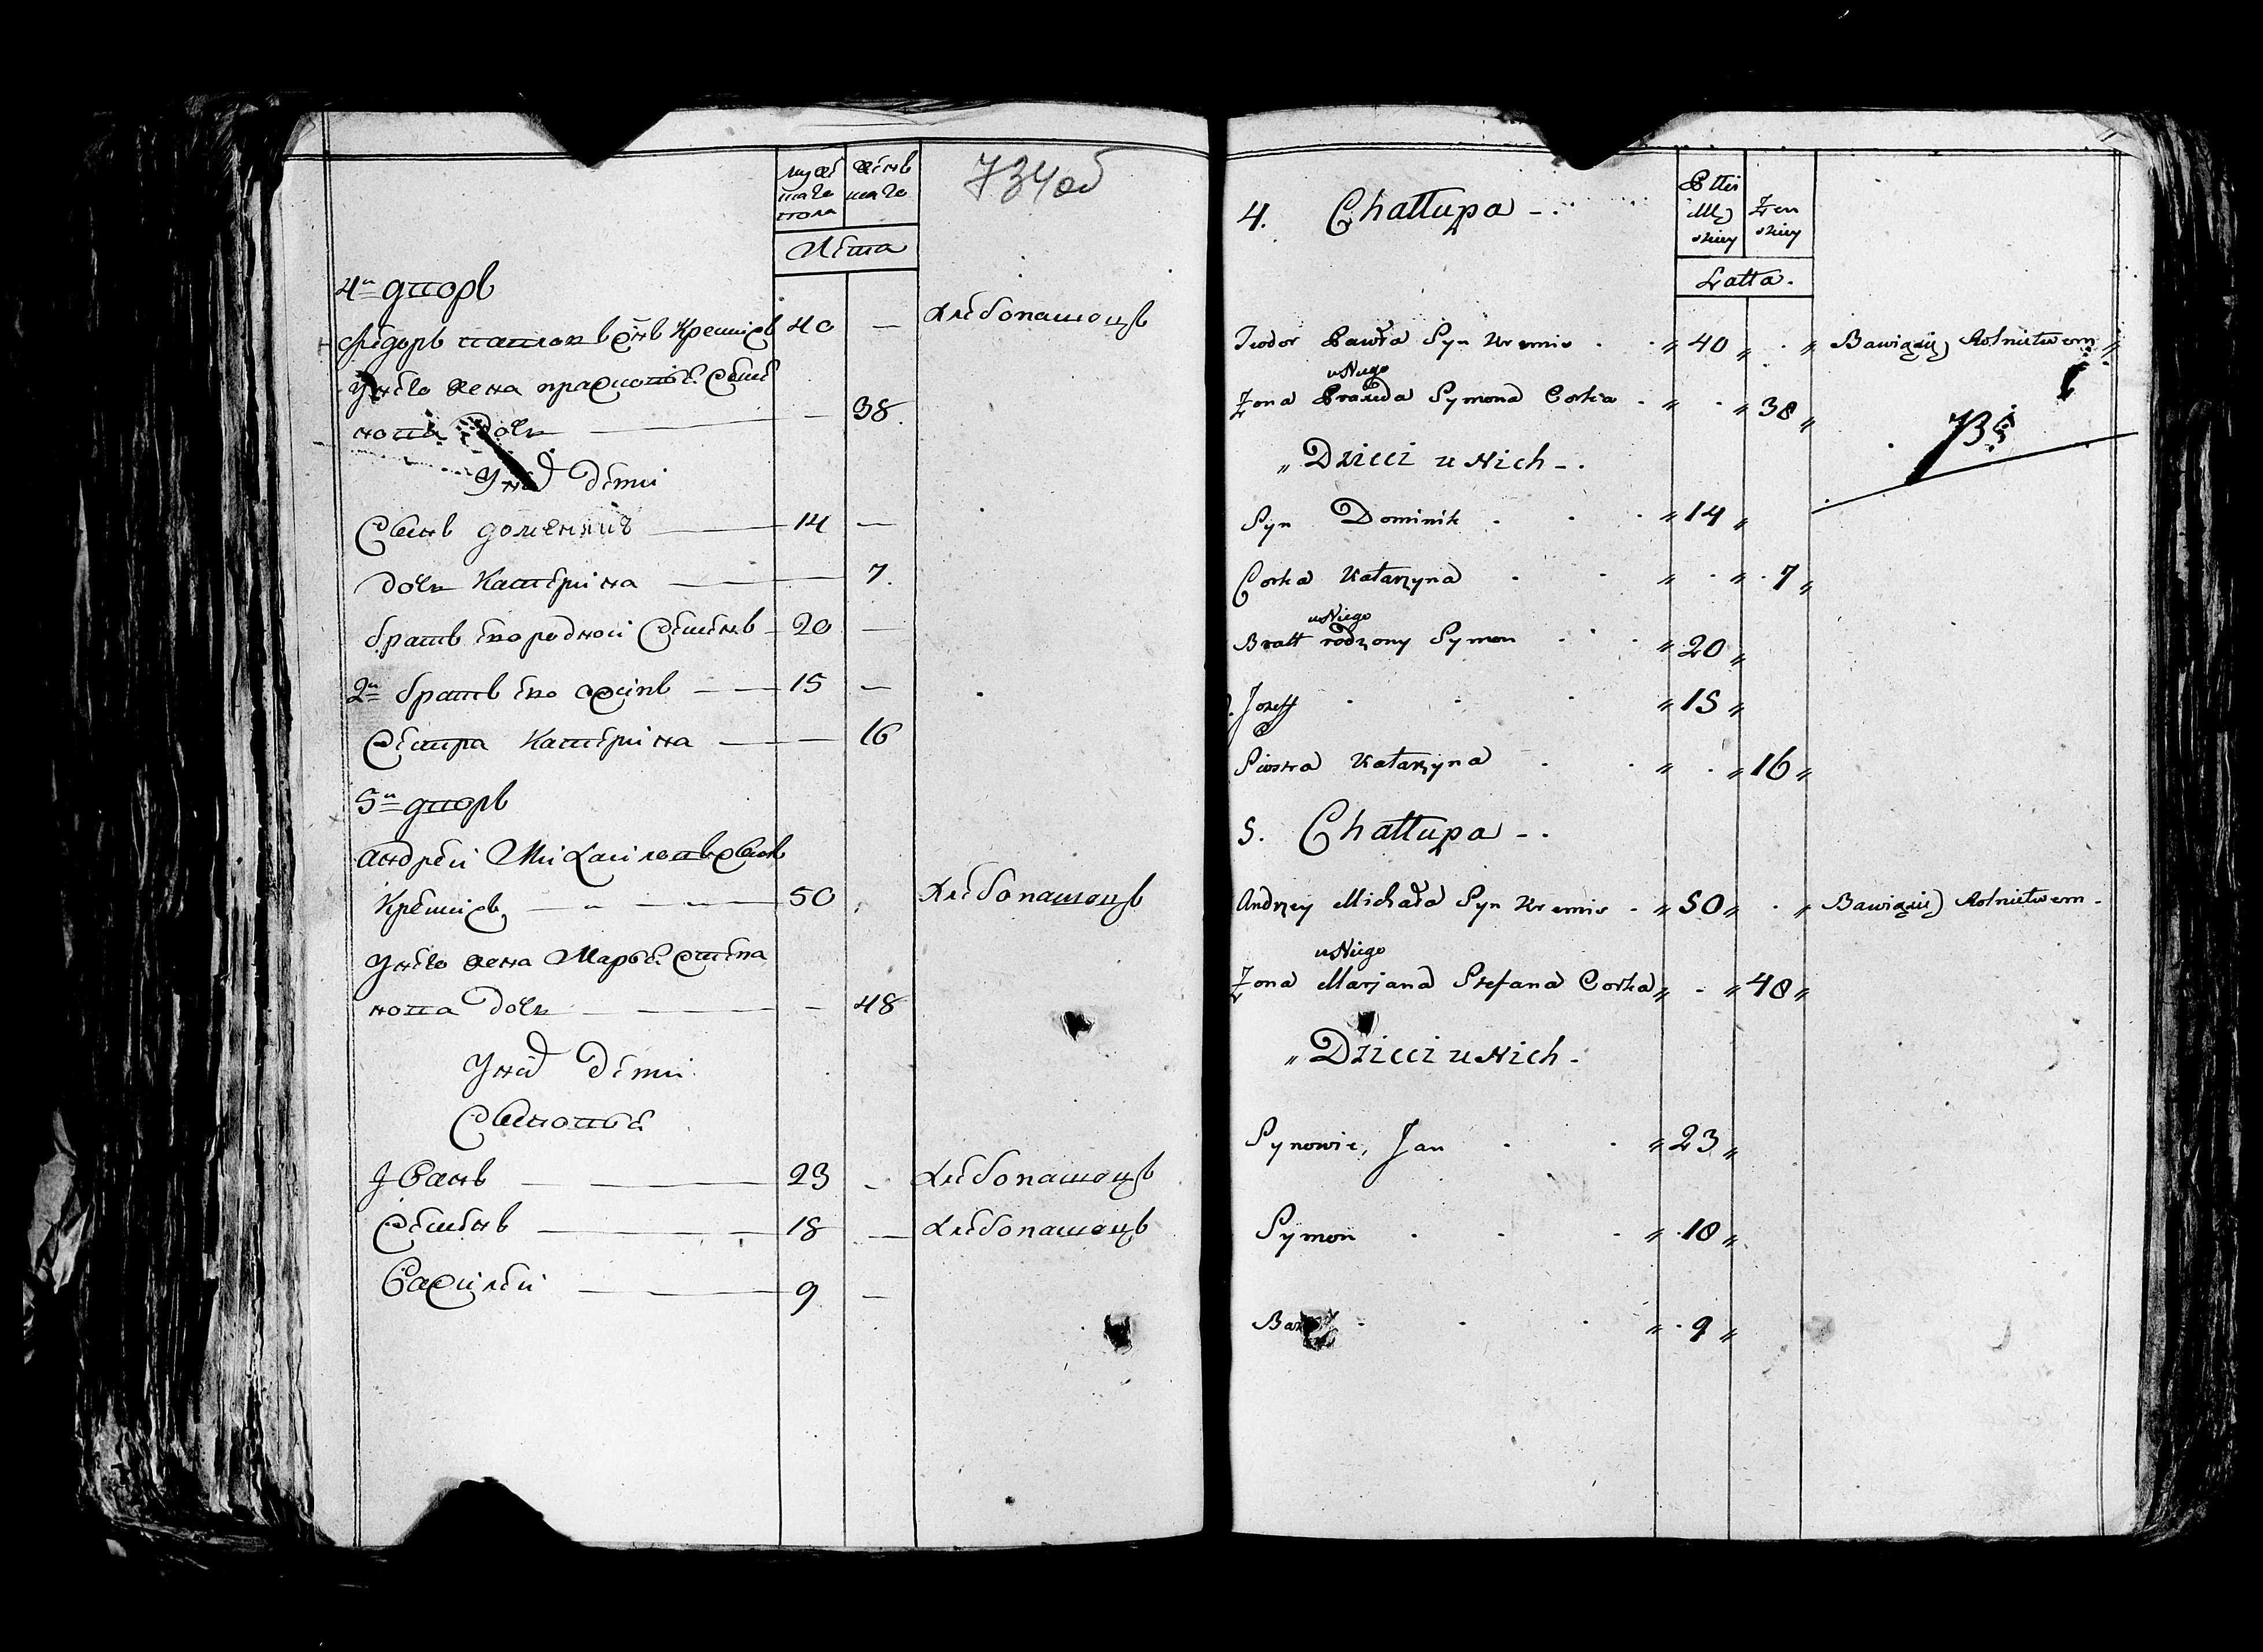 мужеска женс
каго каго
пола
734 об
Лета
4й дворъ
Федоръ Павловъ Сынъ Кремисъ 40 — Хлебопашецъ
У него жена Праксовья Семе
нова Дочь — 38
У них Дети
Сынъ Доменикъ 14 —
Дочь Катерина — 7.
братъ ево родной Семенъ 20 —
2й братъ ево Осипъ 15 —
Сестра Катерина — 16
5й дворъ
Андрей Михайловъ Сынъ
Кремисъ 50 Хлебопашецъ
У него жена Марья Степа
нова Дочь — 48
У них Дети
Сыновья
Иванъ 23 — Хлебопашецъ
Семенъ 18 — Хлебопашецъ
Василей 9 —
Płci
Mę Żen
skiey skiey
4. Chałłupa -.
Latta.
Teodor Pawła Syn Kremis " 40 " . " Bawiący Rolnictwem "
u Niego
Żona Praxeda Symona Corka " . " 38 "
735
" Dzieci u Nich -.
Syn Dominik " 14 "
Corka Katarzyna " . " 7 "
u Niego
Bratt rodzony Symon " 20 "
Jozeff " 15 "
Siostra Katarzyna " . " 16 "
5. Chałłupa -.
Andrzey Michała Syn Kremis " 50 " . " Bawiący Rolnictwem -
u Niego
Żona Marjana Stefana Corka " - " 48 "
" Dzieci u Nich -
Synowie, Jan " 23 "
Symon " 18 "
" 9 "